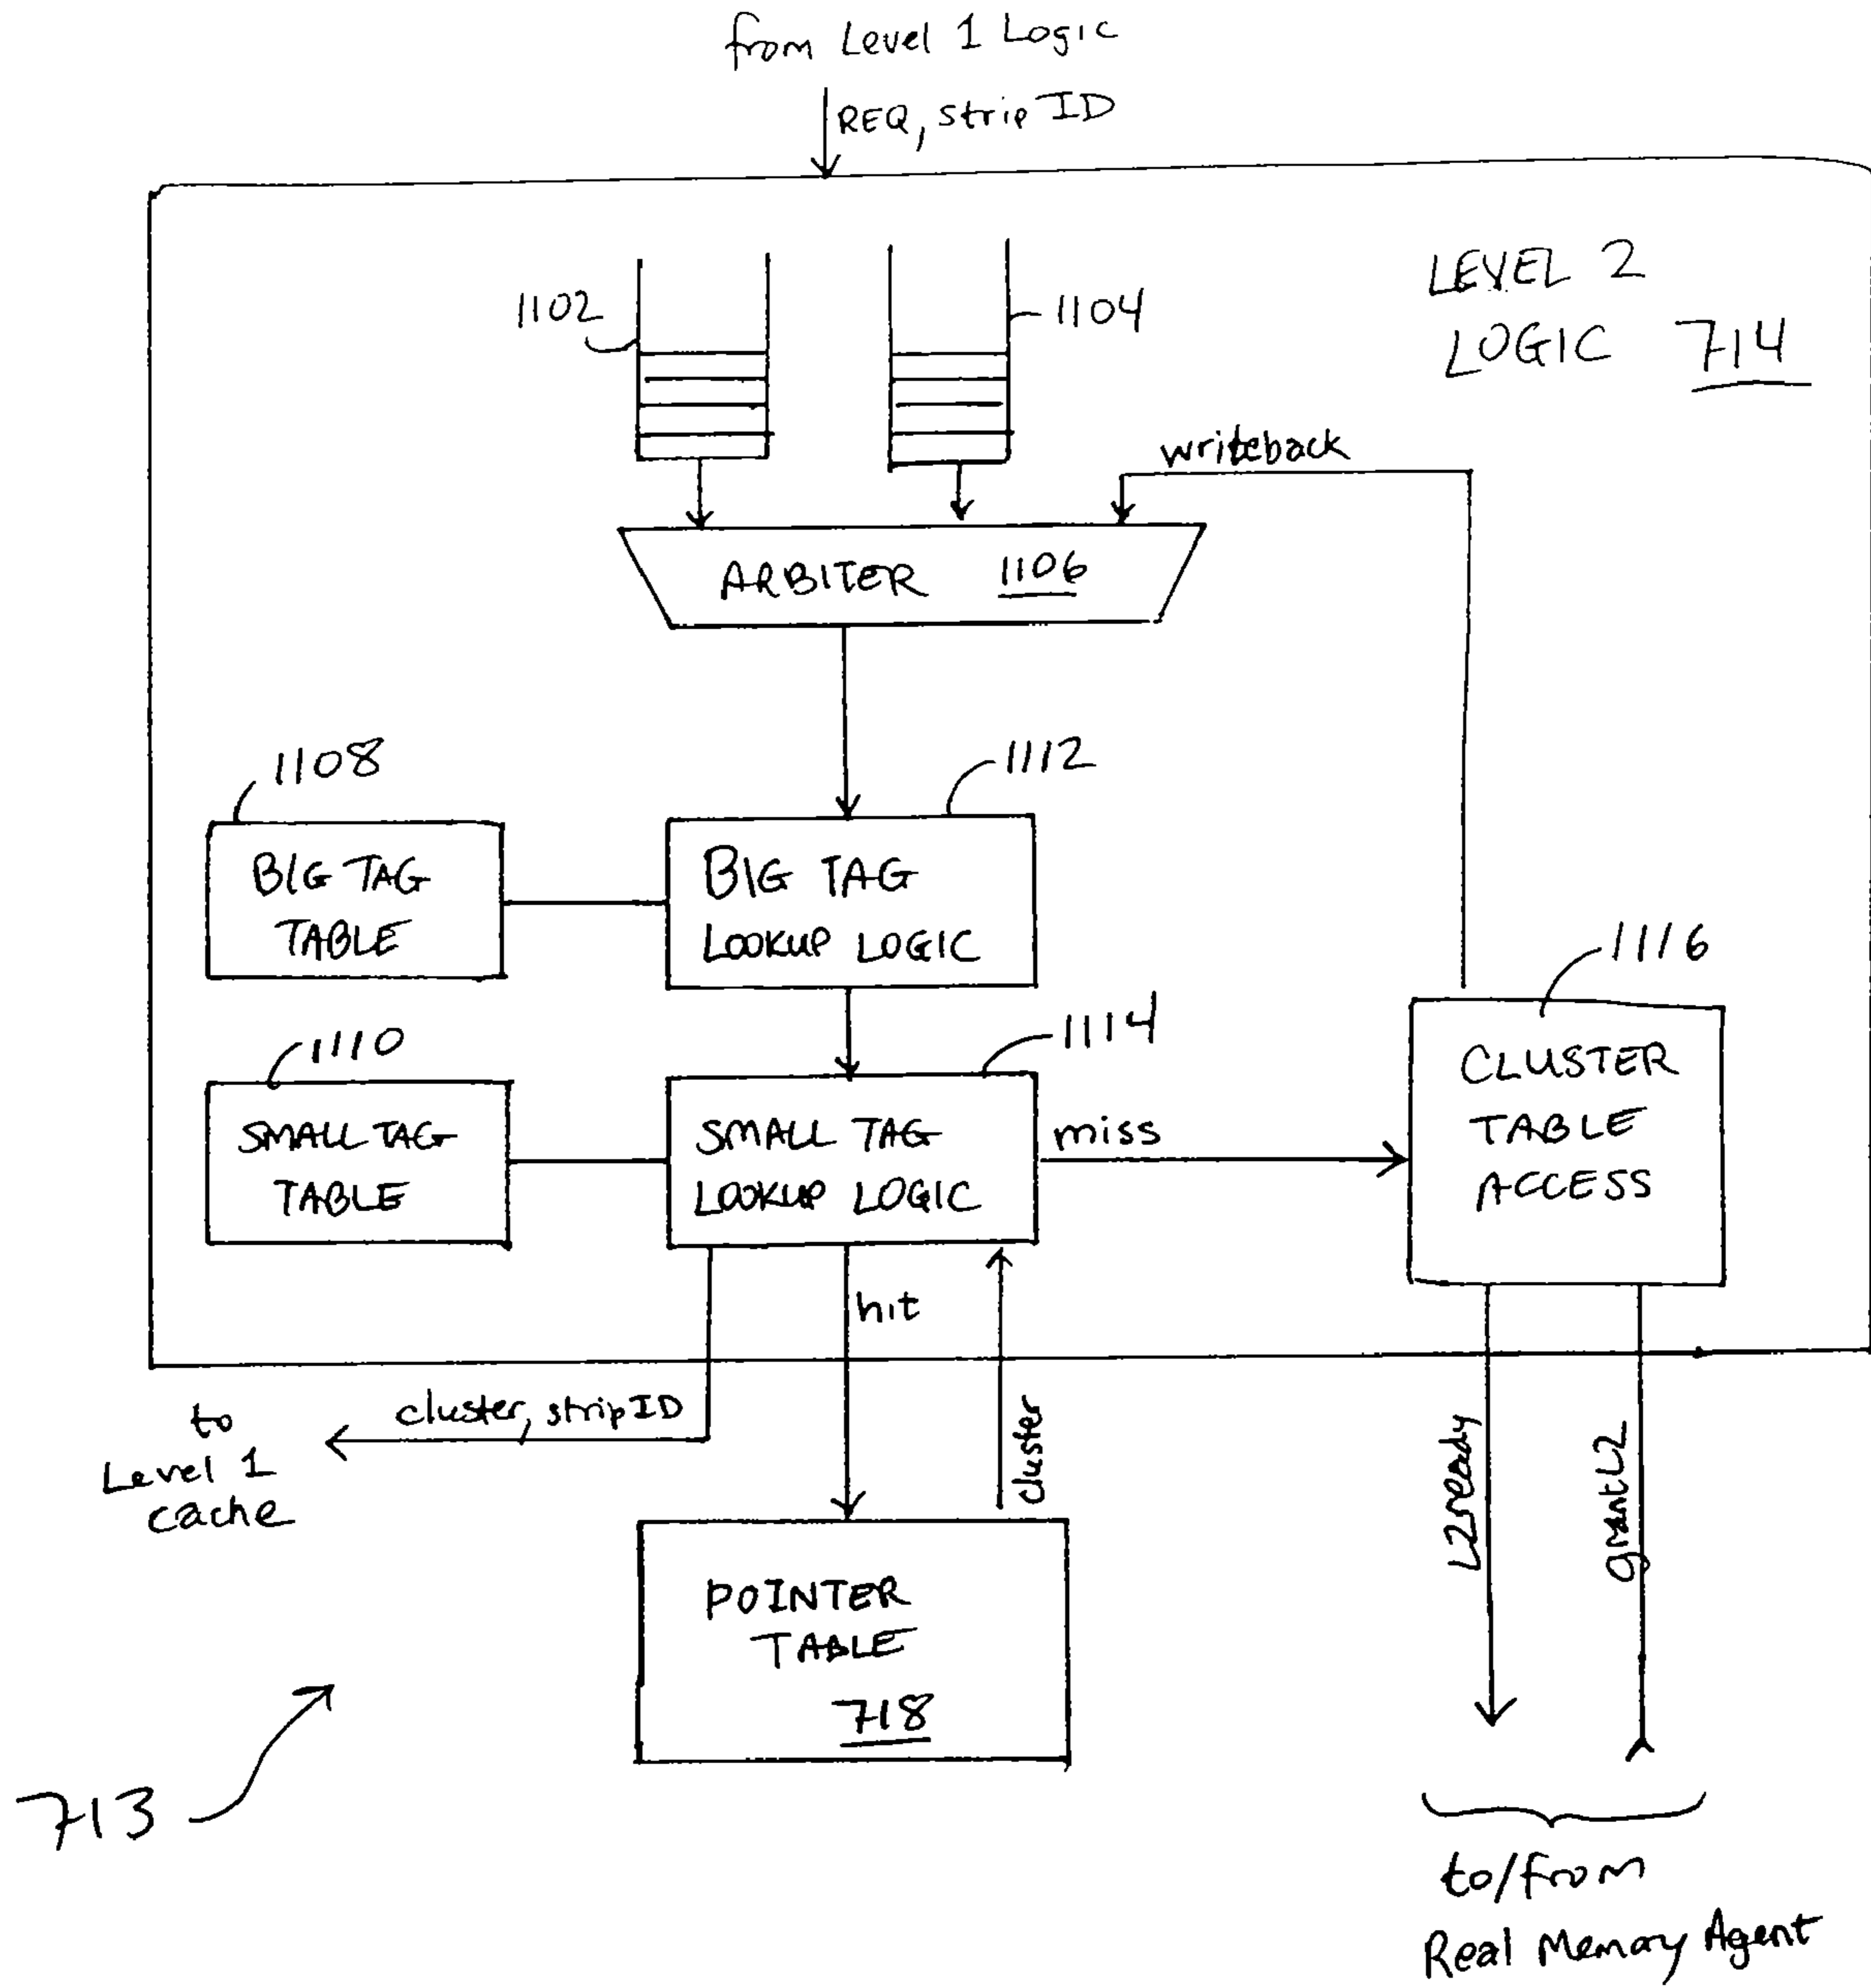 from Level 1 Logic
REQ, strip ID
LEVEL 2
LOGIC 714
1102
1104
writeback
ARBITER 1106
1108
1112
BIG TAG
TABLE
BIG TAG
LOOKUP LOGIC
1116
1110
1114
CLUSTER
TABLE
ACCESS
SMALL TAG
TABLE
SMALL TAG
LOOKUP LOGIC
miss
hit
cluster, strip ID
to
Level 1
cache
cluster
L2ready
grantL2
POINTER
TABLE
718
713
to/from
Real Memory Agent